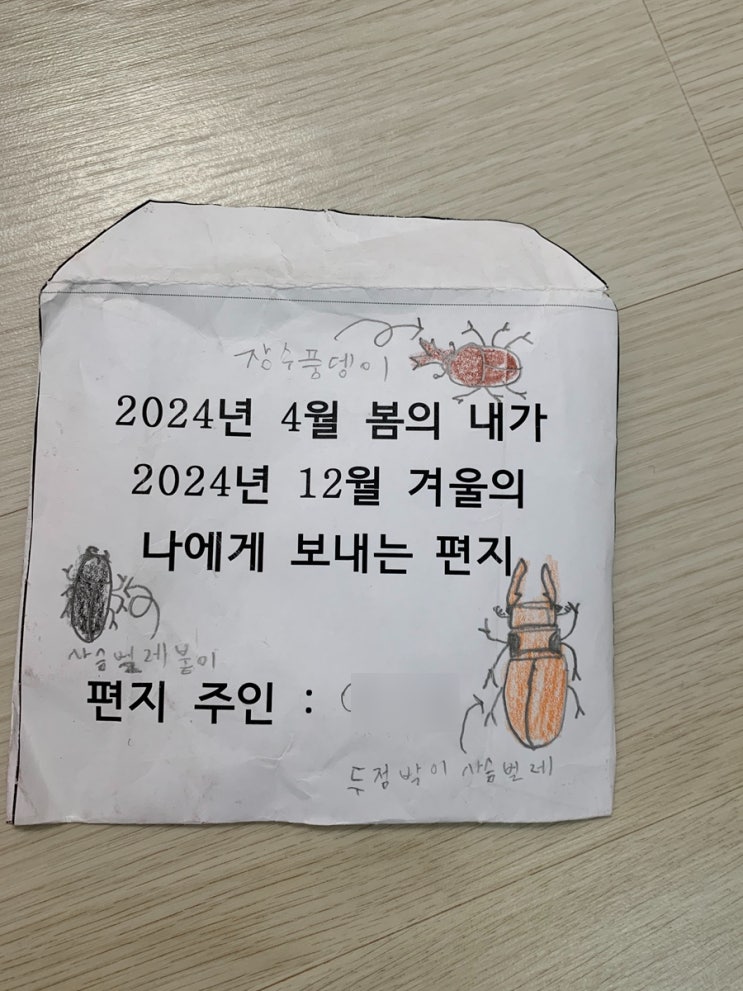 장수풍뎅이
2024년 4월 봄의 내가
2024년 12월 겨울의
나에게 보내는 편지
사슴벌레붙이
편지 주인 :
두점박이 사슴벌레